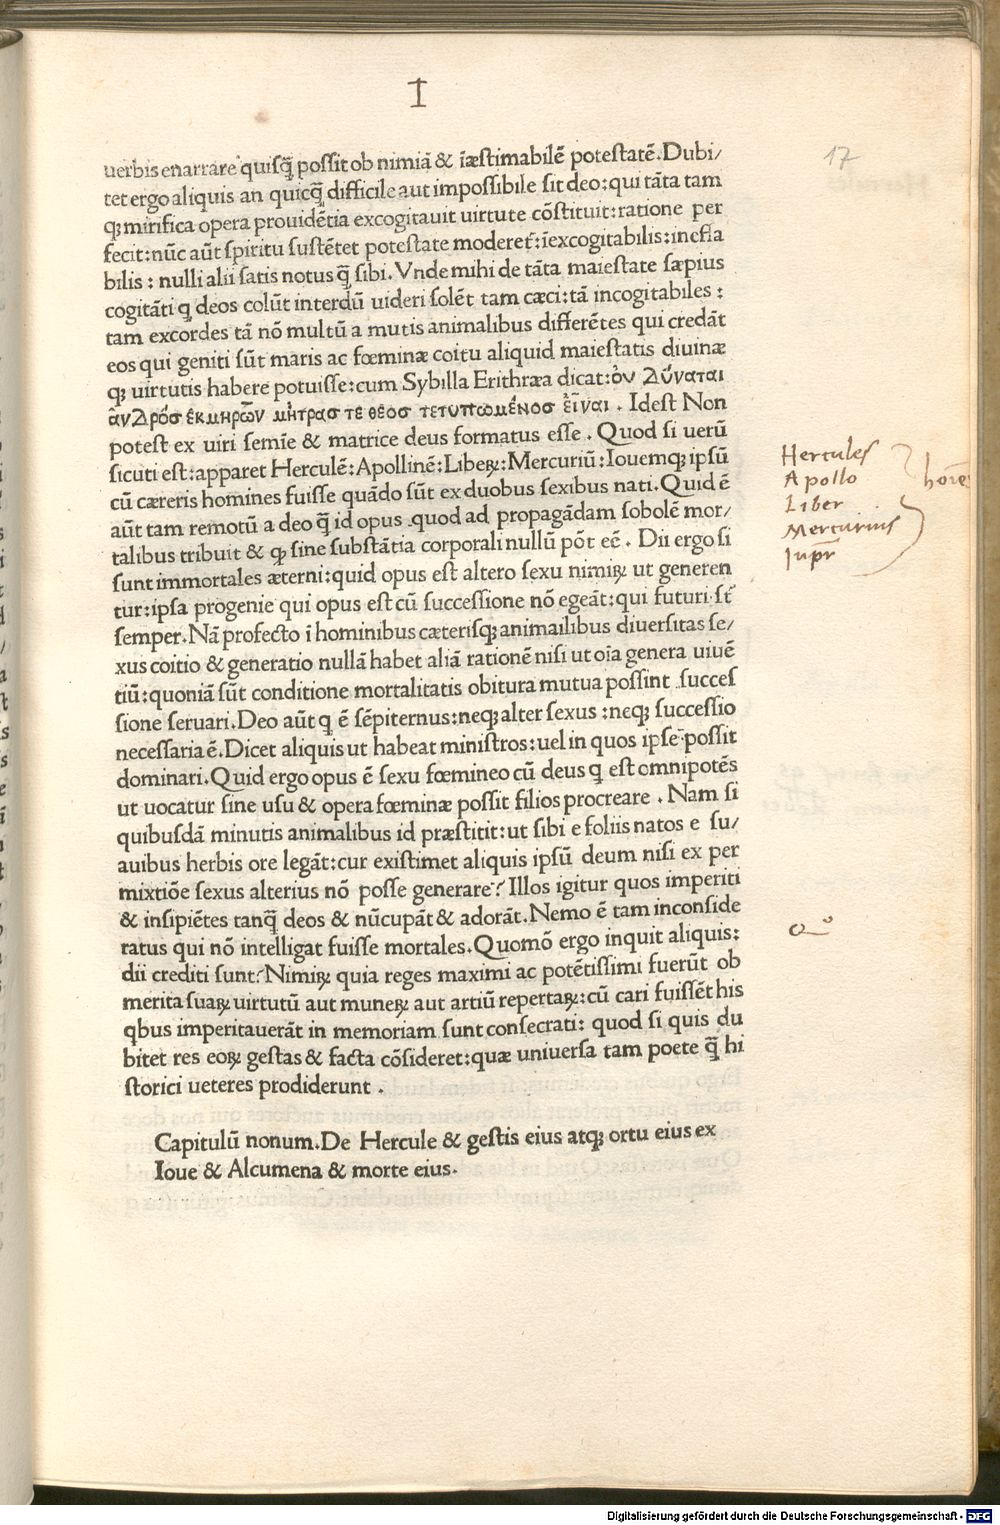 I
17
uerbis enarrare quisq̃ possit ob nimiã & ĩæstimabilẽ potestatẽ. Dubi/
tet ergo aliquis an quicq̃ difficile aut impossibile sit deo: qui tãta tam
qꝫ mirifica opera prouidẽtia excogitauit uirtute cõstituit: ratione per
fecit: nũc aũt spiritu sustẽtet potestate moderet᷑: ĩexcogitabilis: ineffa
bilis : nulli alii satis notus q̃ sibi. Vnde mihi de tãta maiestate sæpius
cogitãti q deos colũt interdũ uideri solẽt tam cæci: tã incogitabiles :
tam excordes tã nõ multũ a mutis animalibus differẽtes qui credãt
eos qui geniti sũt maris ac fœminæ coitu aliquid maiestatis diuinæ
qꝫ uirtutis habere potuisse: cum Sybilla Erithræa dicat: ὀυ Δύναται
ἀνΔρόσ ἐκ μηρῶν μήτρασ τε θέοσ τετυπωμένοσ εἶναι . Idest Non
potest ex uiri semĩe & matrice deus formatus esse . Quod si uerũ
sicuti est: apparet Herculẽ: Apollinẽ: Libeꝝ: Mercuriũ: Iouemqꝫ ipsũ
cũ cæreris homines fuisse quãdo sũt ex duobus sexibus nati. Quid ẽ
aũt tam remotũ a deo q̃ id opus quod ad propagãdam sobolẽ mor/
talibus tribuit & qꝫ sine substãtia corporali nullũ põt eẽ . Dii ergo si
sunt immortales æterni: quid opus est altero sexu nimiꝝ ut generen
tur: ipsa progenie qui opus est cũ successione nõ egeãt: qui futuri st̃
semper. Nã profecto ĩ hominibus cæterisqꝫ animailibus diuersitas se/
xus coitio & generatio nullã habet aliã rationẽ nisi ut oĩa genera uiuẽ
tiũ: quoniã sũt conditione mortalitatis obitura mutua possint succes
sione seruari. Deo aũt q ẽ sẽpiternus: neqꝫ alter sexus : neqꝫ successio
necessaria ẽ. Dicet aliquis ut habeat ministros: uel in quos ipse possit
dominari. Quid ergo opus ẽ sexu fœmineo cũ deus q est omnipotẽs
ut uocatur sine usu & opera fœminæ possit filios procreare . Nam si
quibusdã minutis animalibus id præstitit: ut sibi e foliis natos e su/
auibus herbis ore legãt: cur existimet aliquis ipsũ deum nisi ex per
mixtiõe sexus alterius nõ posse generare? Illos igitur quos imperiti
& insipiẽtes tanq̃ deos & nũcupãt & adorãt. Nemo ẽ tam inconside
ratus qui nõ intelligat fuisse mortales. Quomõ ergo inquit aliquis:
dii crediti sunt? Nimiꝝ quia reges maximi ac potẽtissimi fuerũt ob
merita suaꝝ uirtutũ aut muneꝝ aut artiũ repertaꝝ: cũ cari fuissẽt his
qbus imperitauerãt in memoriam sunt consecrati: quod si quis du
bitet res eoꝝ gestas & facta cõsideret: quæ uniuersa tam poete q̃ hi
storici ueteres prodiderunt .
Hercules
Apollo
Liber
Mercurius
Iupr̃
Capitulũ nonum. De Hercule & gestis eius atqꝫ ortu eius ex
Ioue & Alcumena & morte eius.
Digitalisierung gefördert durch die Deutsche Forschungsgemeinschaft - DFG